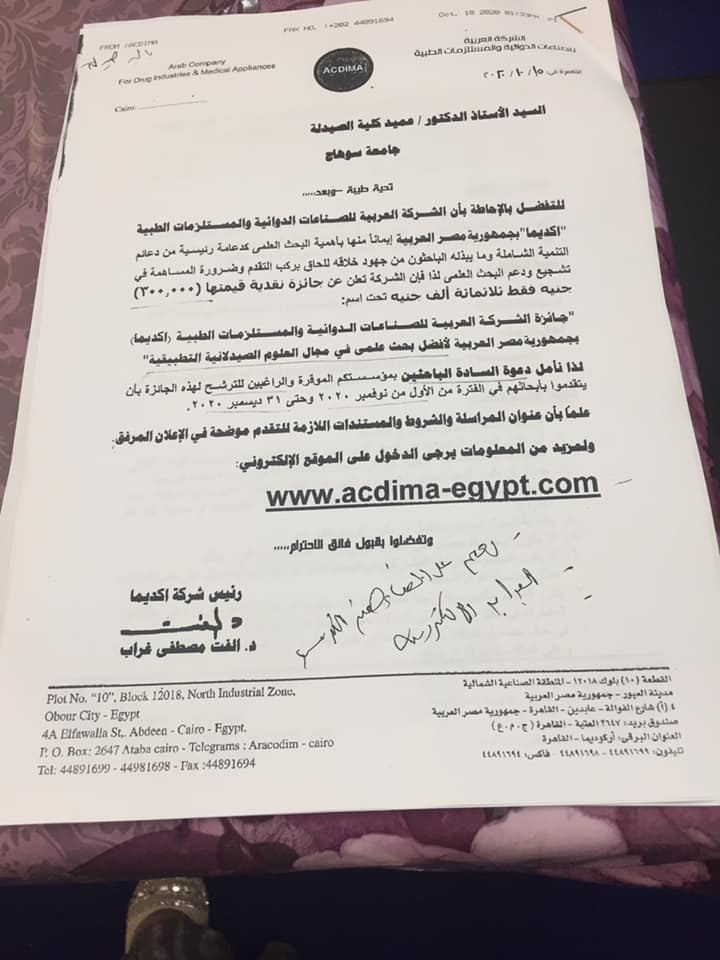 FAX NO. :+202 44891694
Oct. 18 2020 01:33PM P1
FROM :ACDIMA
Arab Company
For Drug Industries & Medical Appliances
Cairo:
ACDIMA
الشركة العربية
للصناعات الدوائية والمستلزمات الطبية
القاهرة في: ٢٠٢٠/١٠/١٥
السيد الأستاذ الدكتور / عميد كلية الصيدلة
جامعة سوهاج
تحية طيبة وبعد.....
للتفضل بالإحاطة بأن الشركة العربية للصناعات الدوائية والمستلزمات الطبية
"اكديما" بجمهورية مصر العربية إيماناً منها بأهمية البحث العلمى كدعامة رئيسية من دعائم
التنمية الشاملة وما يبذله الباحثون من جهود خلاقه للحاق بركب التقدم وضرورة المساهمة في
تشجيع ودعم البحث العلمى لذا فإن الشركة تعلن عن جائزة نقدية قيمتها (٣٠٠,٠٠٠)
جنيه فقط ثلاثمائة ألف جنيه تحت اسم:
"جائزة الشركة العربية للصناعات الدوائية والمستلزمات الطبية (اكديما)
بجمهورية مصر العربية لأفضل بحث علمى في مجال العلوم الصيدلانية التطبيقية"
لذا نأمل دعوة السادة الباحثين بمؤسستكم الموقرة والراغبين للترشح لهذه الجائزة بأن
يتقدموا بأبحاثهم في الفترة من الأول من نوفمبر ٢٠٢٠ وحتى ٣١ ديسمبر ٢٠٢٠.
علماً بأن عنوان المراسلة والشروط والمستندات اللازمة للتقدم موضحة في الإعلان المرفق.
ولمزيد من المعلومات يرجى الدخول على الموقع الإلكتروني:
www.acdima-egypt.com
وتفضلوا بقبول فائق الاحترام.....
رئيس شركة اكديما
د. الفت مصطفى غراب
Plot No. "10", Block 12018, North Industrial Zone,
Obour City - Egypt
4A Elfawalla St,. Abdeen - Cairo - Egypt.
P. O. Box: 2647 Ataba cairo - Telegrams : Aracodim - cairo
Tel: 44891699 - 44981698 - Fax :44891694
القطعة (١٠) بلوك ١٢٠١٨ - المنطقة الصناعية الشمالية
مدينة العبور - جمهورية مصر العربية
٤ (أ) شارع الفوالة - عابدين - القاهرة - جمهورية مصر العربية
صندوق بريد: ٢٦٤٧ العتبة - القاهرة (ج.م.ع)
العنوان البرقى: أركوديما - القاهرة
تليفون: ٤٤٨٩١٦٩٩ - ٤٤٨٩١٦٩٨ فاكس: ٤٤٨٩١٦٩٤